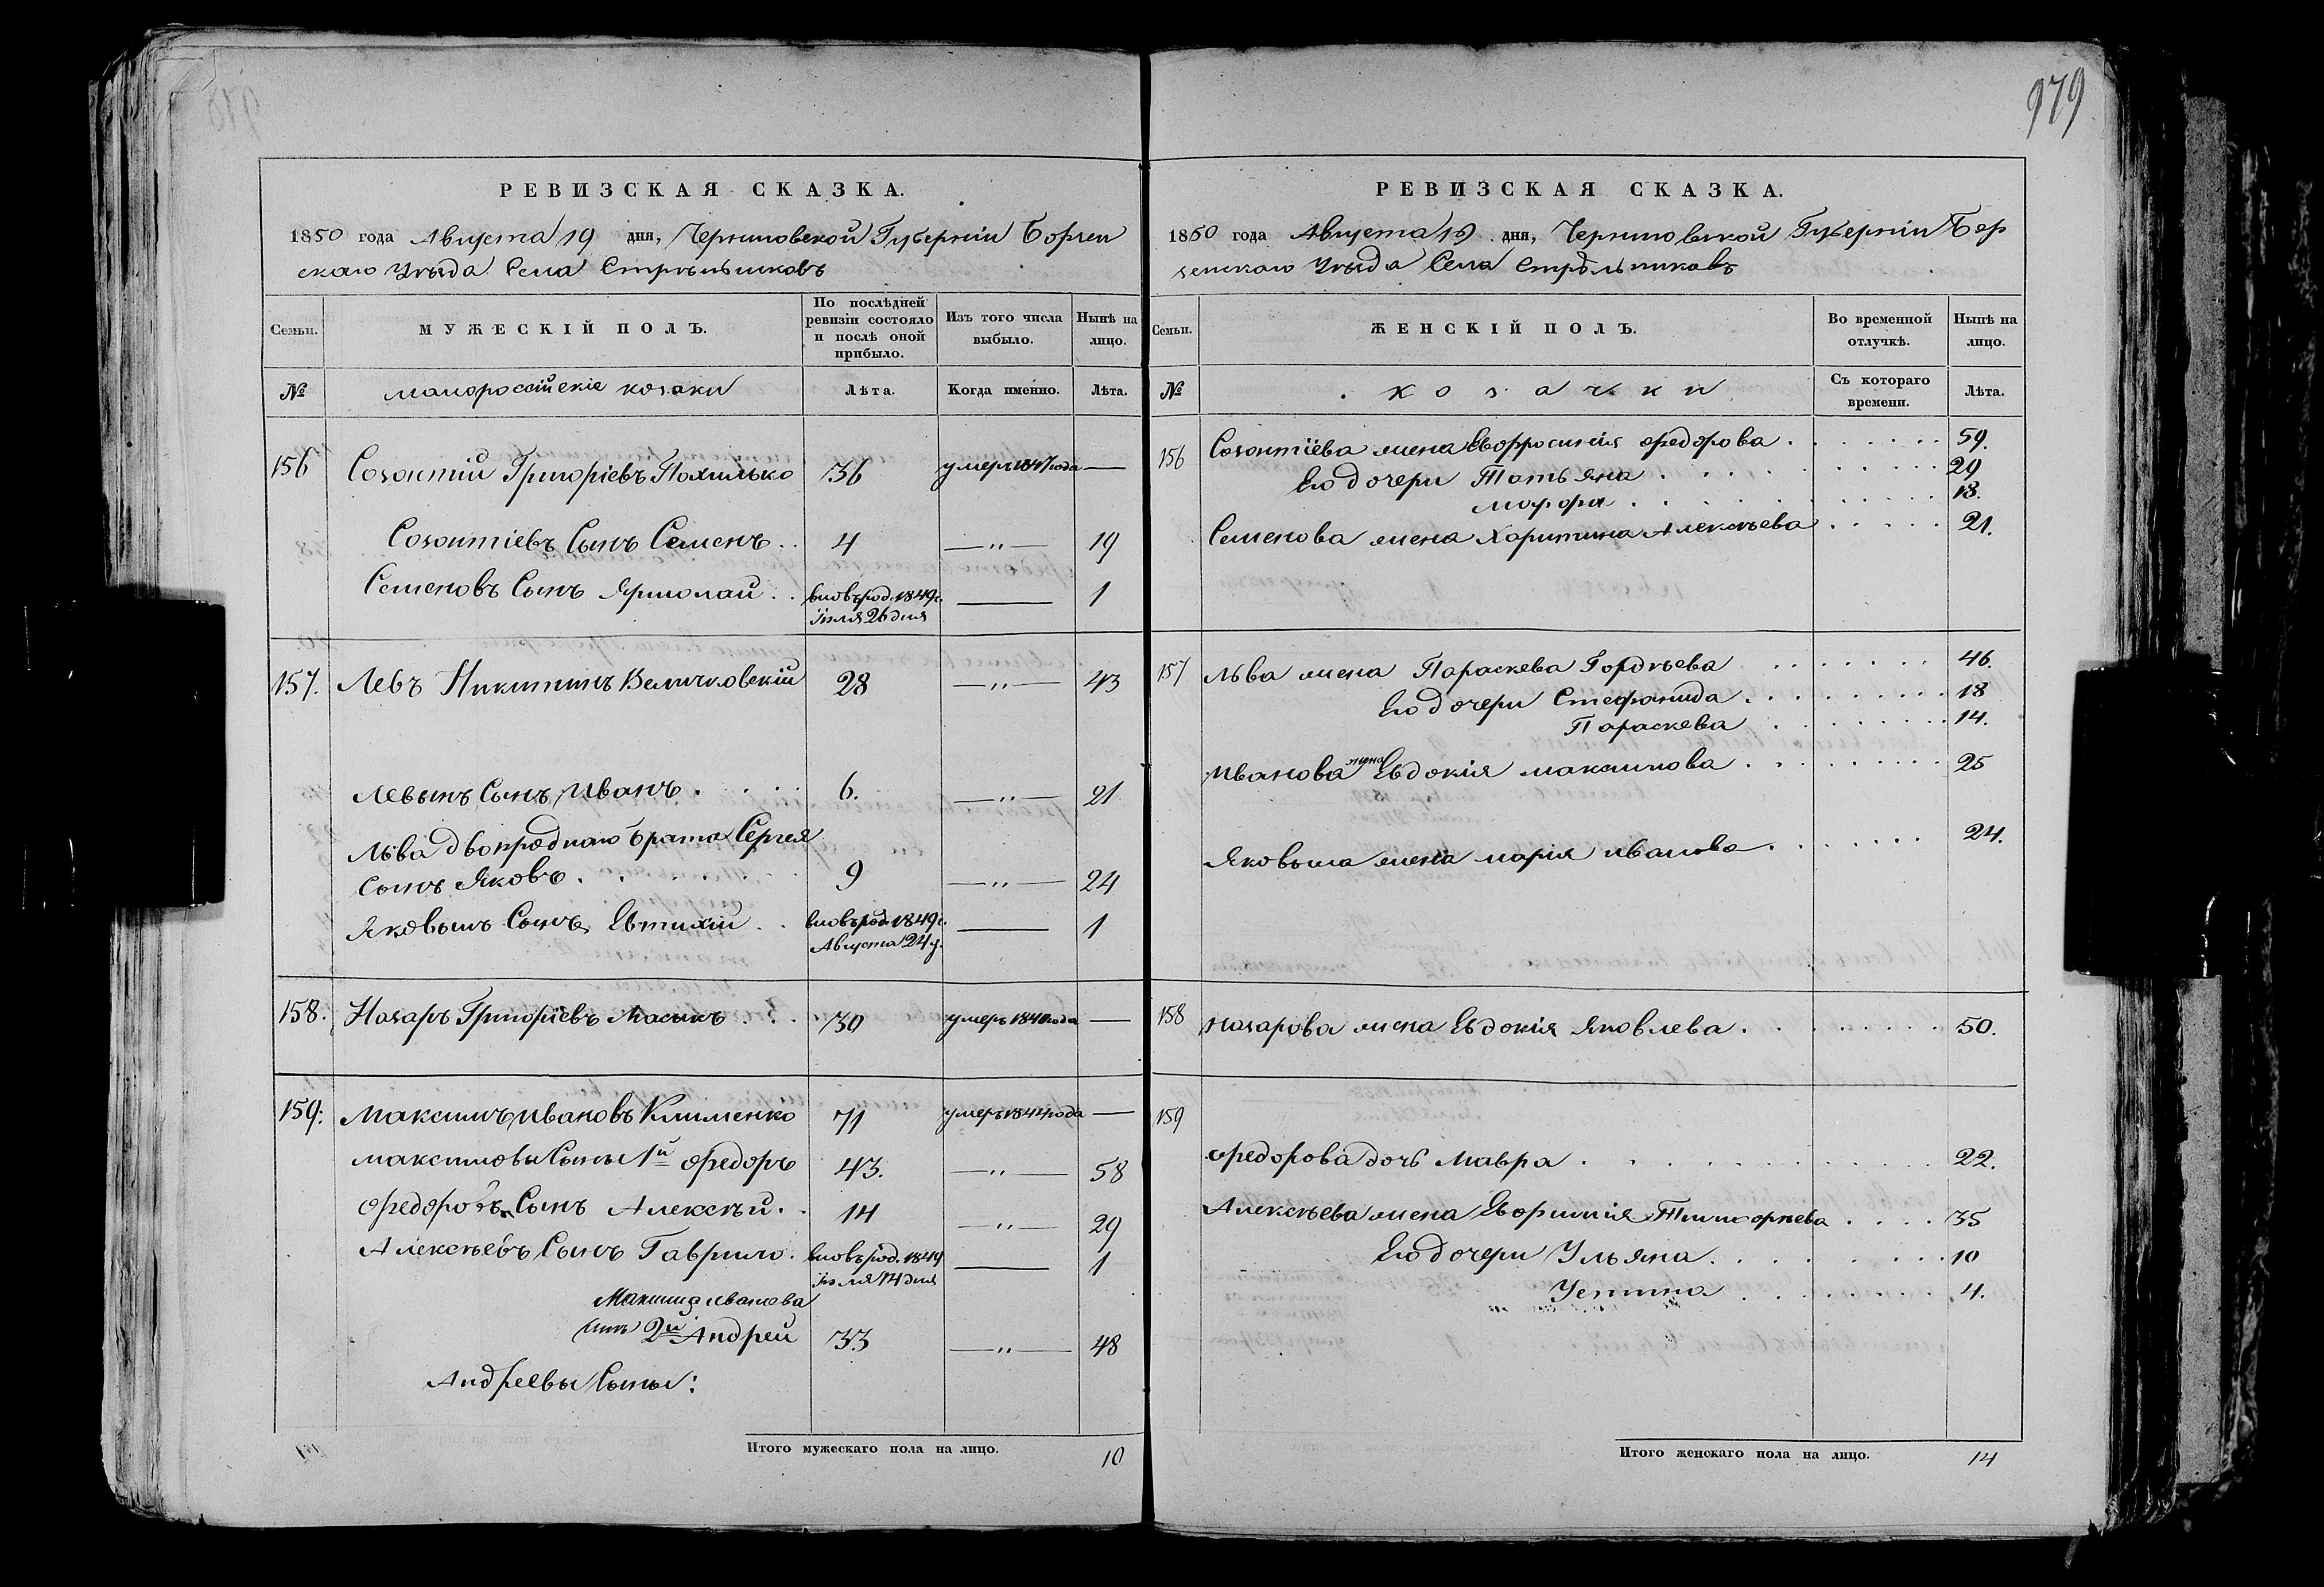 979
РЕВИЗСКАЯ СКАЗКА.
1850 года Августа 19 дня, Черниговской Губерніи Борзен
скаго Уѣзда Села Стрѣльниковъ
Семьи. МУЖЕСКІЙ ПОЛЪ. По послѣдней ревизіи состояло и послѣ оной прибыло. Изъ того числа выбыло. Нынѣ на лицо.
№ малороссійскіе козаки Лѣта. Когда именно. Лѣта.
156 Созонтій Григоріевъ Похилько 36 умеръ 1847 года —
Созонтіевъ Сынъ Семенъ . . 4 —„— 19
Семеновъ Сынъ Ярмолай . . вновь род. 1849 г. — 1
Іюля 26 дня
157. Левъ Никитинъ Величковскій 28 —„— 43
Левынъ Сынъ Иванъ . . . . 6. —„— 21
Льва двоюроднаго брата Сергея
сынъ Яковъ . . . . . 9 —„— 24
Яковынъ Сынъ Евтихій . . вновь род. 1849 г. — 1
Августа 24 д.
158. Назаръ Григоріевъ Масыкъ . . . 30 умеръ 1840 года —
159. Максимъ Ивановъ Клименко 71 умеръ 1844 года —
Максимовы Сыны 1й Федоръ 43. —„— 58
Федоровъ Сынъ Алексѣй . . 14 —„— 29
Алексѣевъ Сынъ Гаврило . вновь род. 1849 — 1
Іюля 14 дня
Максима Иванова
сынъ 2й Андрей 33 —„— 48
Андреевы Сыны:
Итого мужескаго пола на лицо. 10
РЕВИЗСКАЯ СКАЗКА.
1850 года Августа 19 дня, Черниговской Губерніи Бор
зенскаго Уѣзда Села Стрѣльниковъ
Семьи. ЖЕНСКІЙ ПОЛЪ. Во временной отлучкѣ. Нынѣ на лицо.
№ козачки Съ котораго времени. Лѣта.
156 Созонтіева жена Евфросинія Федорова . . . . . . . 59.
Его дочери Татьяна . . . . . . . . . 29
Мафра . . . . . . . . . 18.
Семенова жена Харитина Алексѣева . . . . . 21.
157 Льва жена Параскева Гордѣева . . . . . . . 46.
Его дочери Стефанида . . . . . . . . . 18
Параскева . . . . . . . . 14.
Иванова жена Евдокія Максимова . . . . . . . . . 25
Яковына жена Марія Иванова . . . . . . . 24.
158 Назарова жена Евдокія Яковлева . . . . . . . . 50.
159
Федорова дочь Мавра . . . . . . . . . . . . . 22.
Алексѣева жена Евфимія Тимофѣева . . . . 35
Его дочери Ульяна . . . . . . . . 10
Устина . . . . . . . . 4.
Итого женскаго пола на лицо. 14